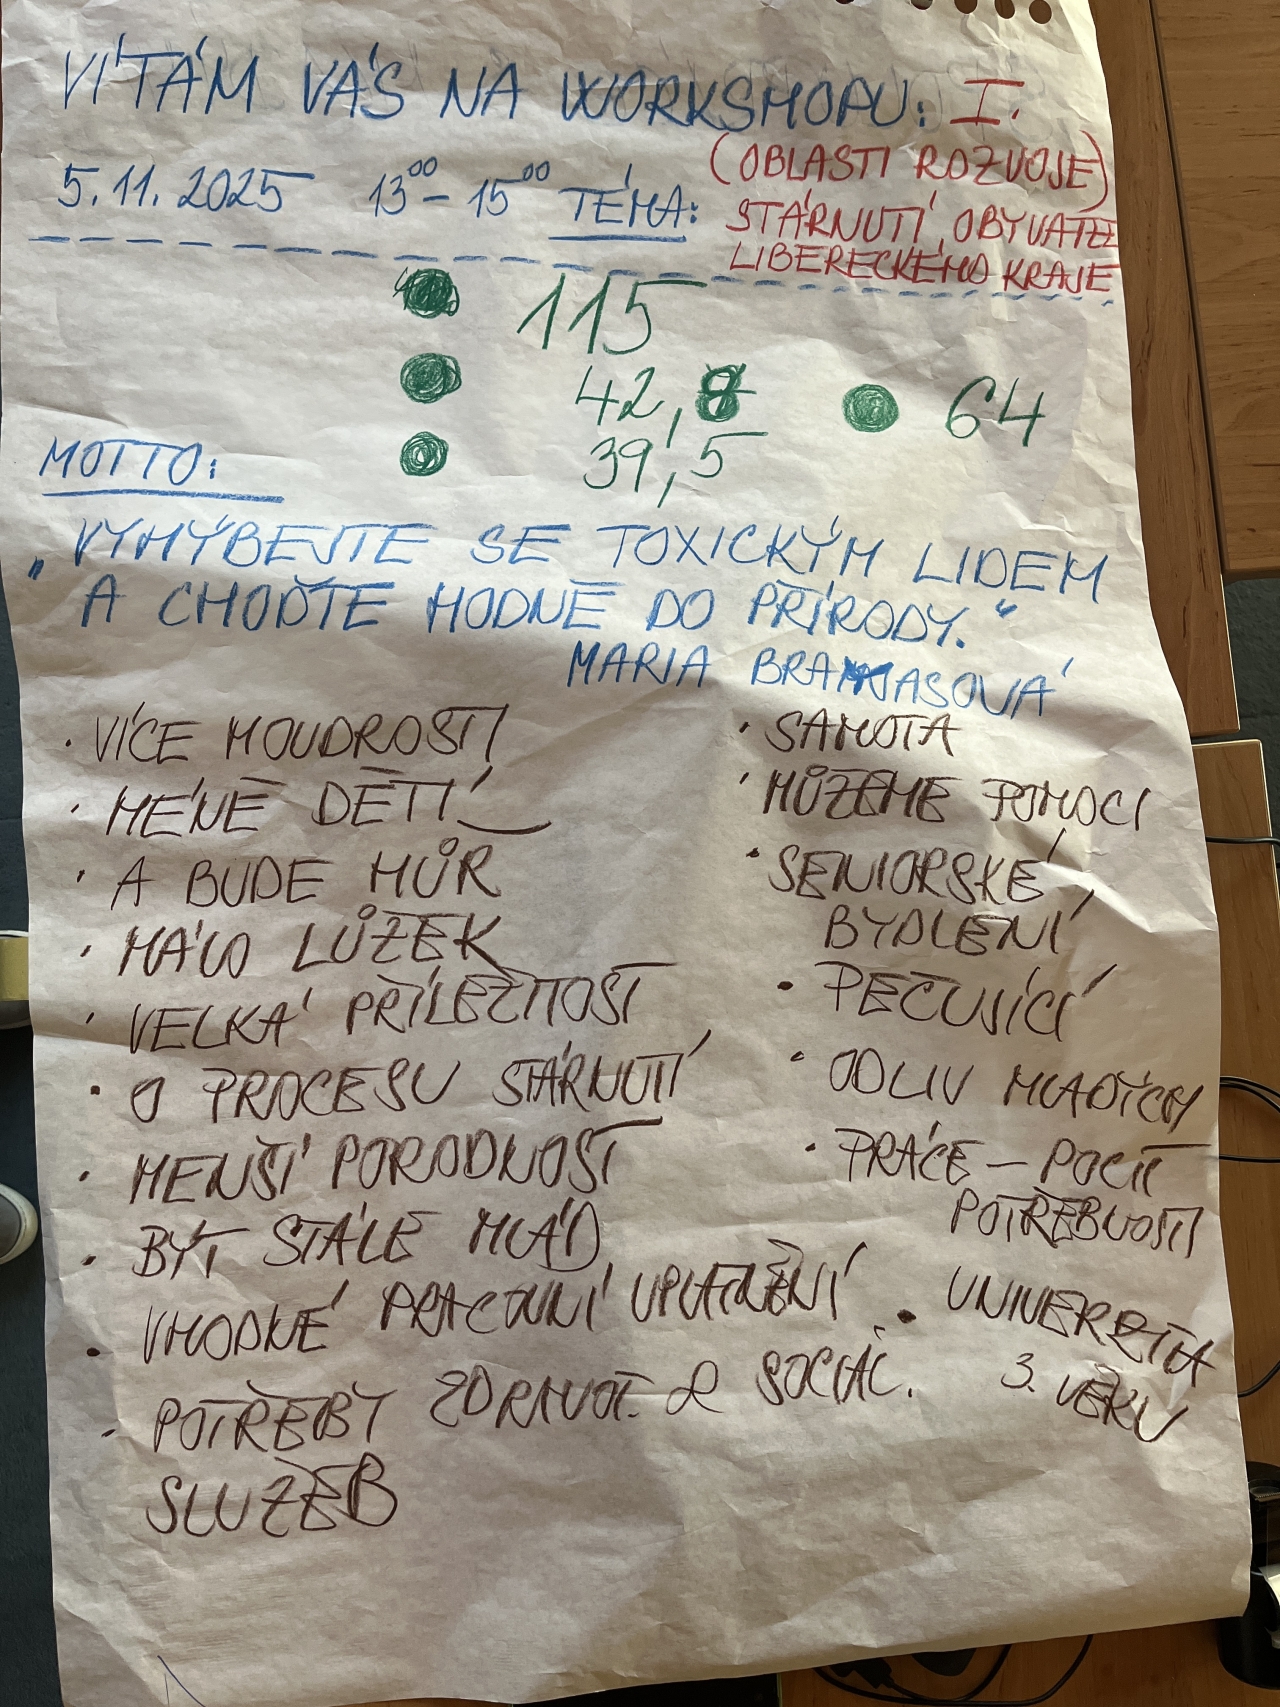 VÍTÁM VÁS NA WORKSHOPU: I.
(OBLASTI ROZVOJE)
5.11.2025 13⁰⁰ – 15⁰⁰ TÉMA:
STÁRNUTÍ OBYVATEL
LIBERECKÉHO KRAJE
115
42,8 64
39,5
MOTTO:
„VYHÝBEJTE SE TOXICKÝM LIDEM
A CHOĎTE HODNĚ DO PŘÍRODY.“
MARIA BRANYASOVÁ
· VÍCE MOUDROSTI
· MÉNĚ DĚTÍ
· A BUDE HŮŘ
· MÁLO LŮŽEK
· VELKÁ PŘÍLEŽITOST
· O PROCESU STÁRNUTÍ
· MENŠÍ PORODNOST
· BÝT STÁLE MLÁD
· VHODNÉ PRACOVNÍ UPLATNĚNÍ
· POTŘEBY ZDRAVOT. & SOCIÁL.
SLUŽEB
· SAMOTA
· MŮŽEME POMOCI
· SENIORSKÉ
BYDLENÍ
· PEČUJÍCÍ
· ODLIV MLADÝCH
· PRÁCE – POCIT
POTŘEBNOSTI
· UNIVERZITA
3. VĚKU